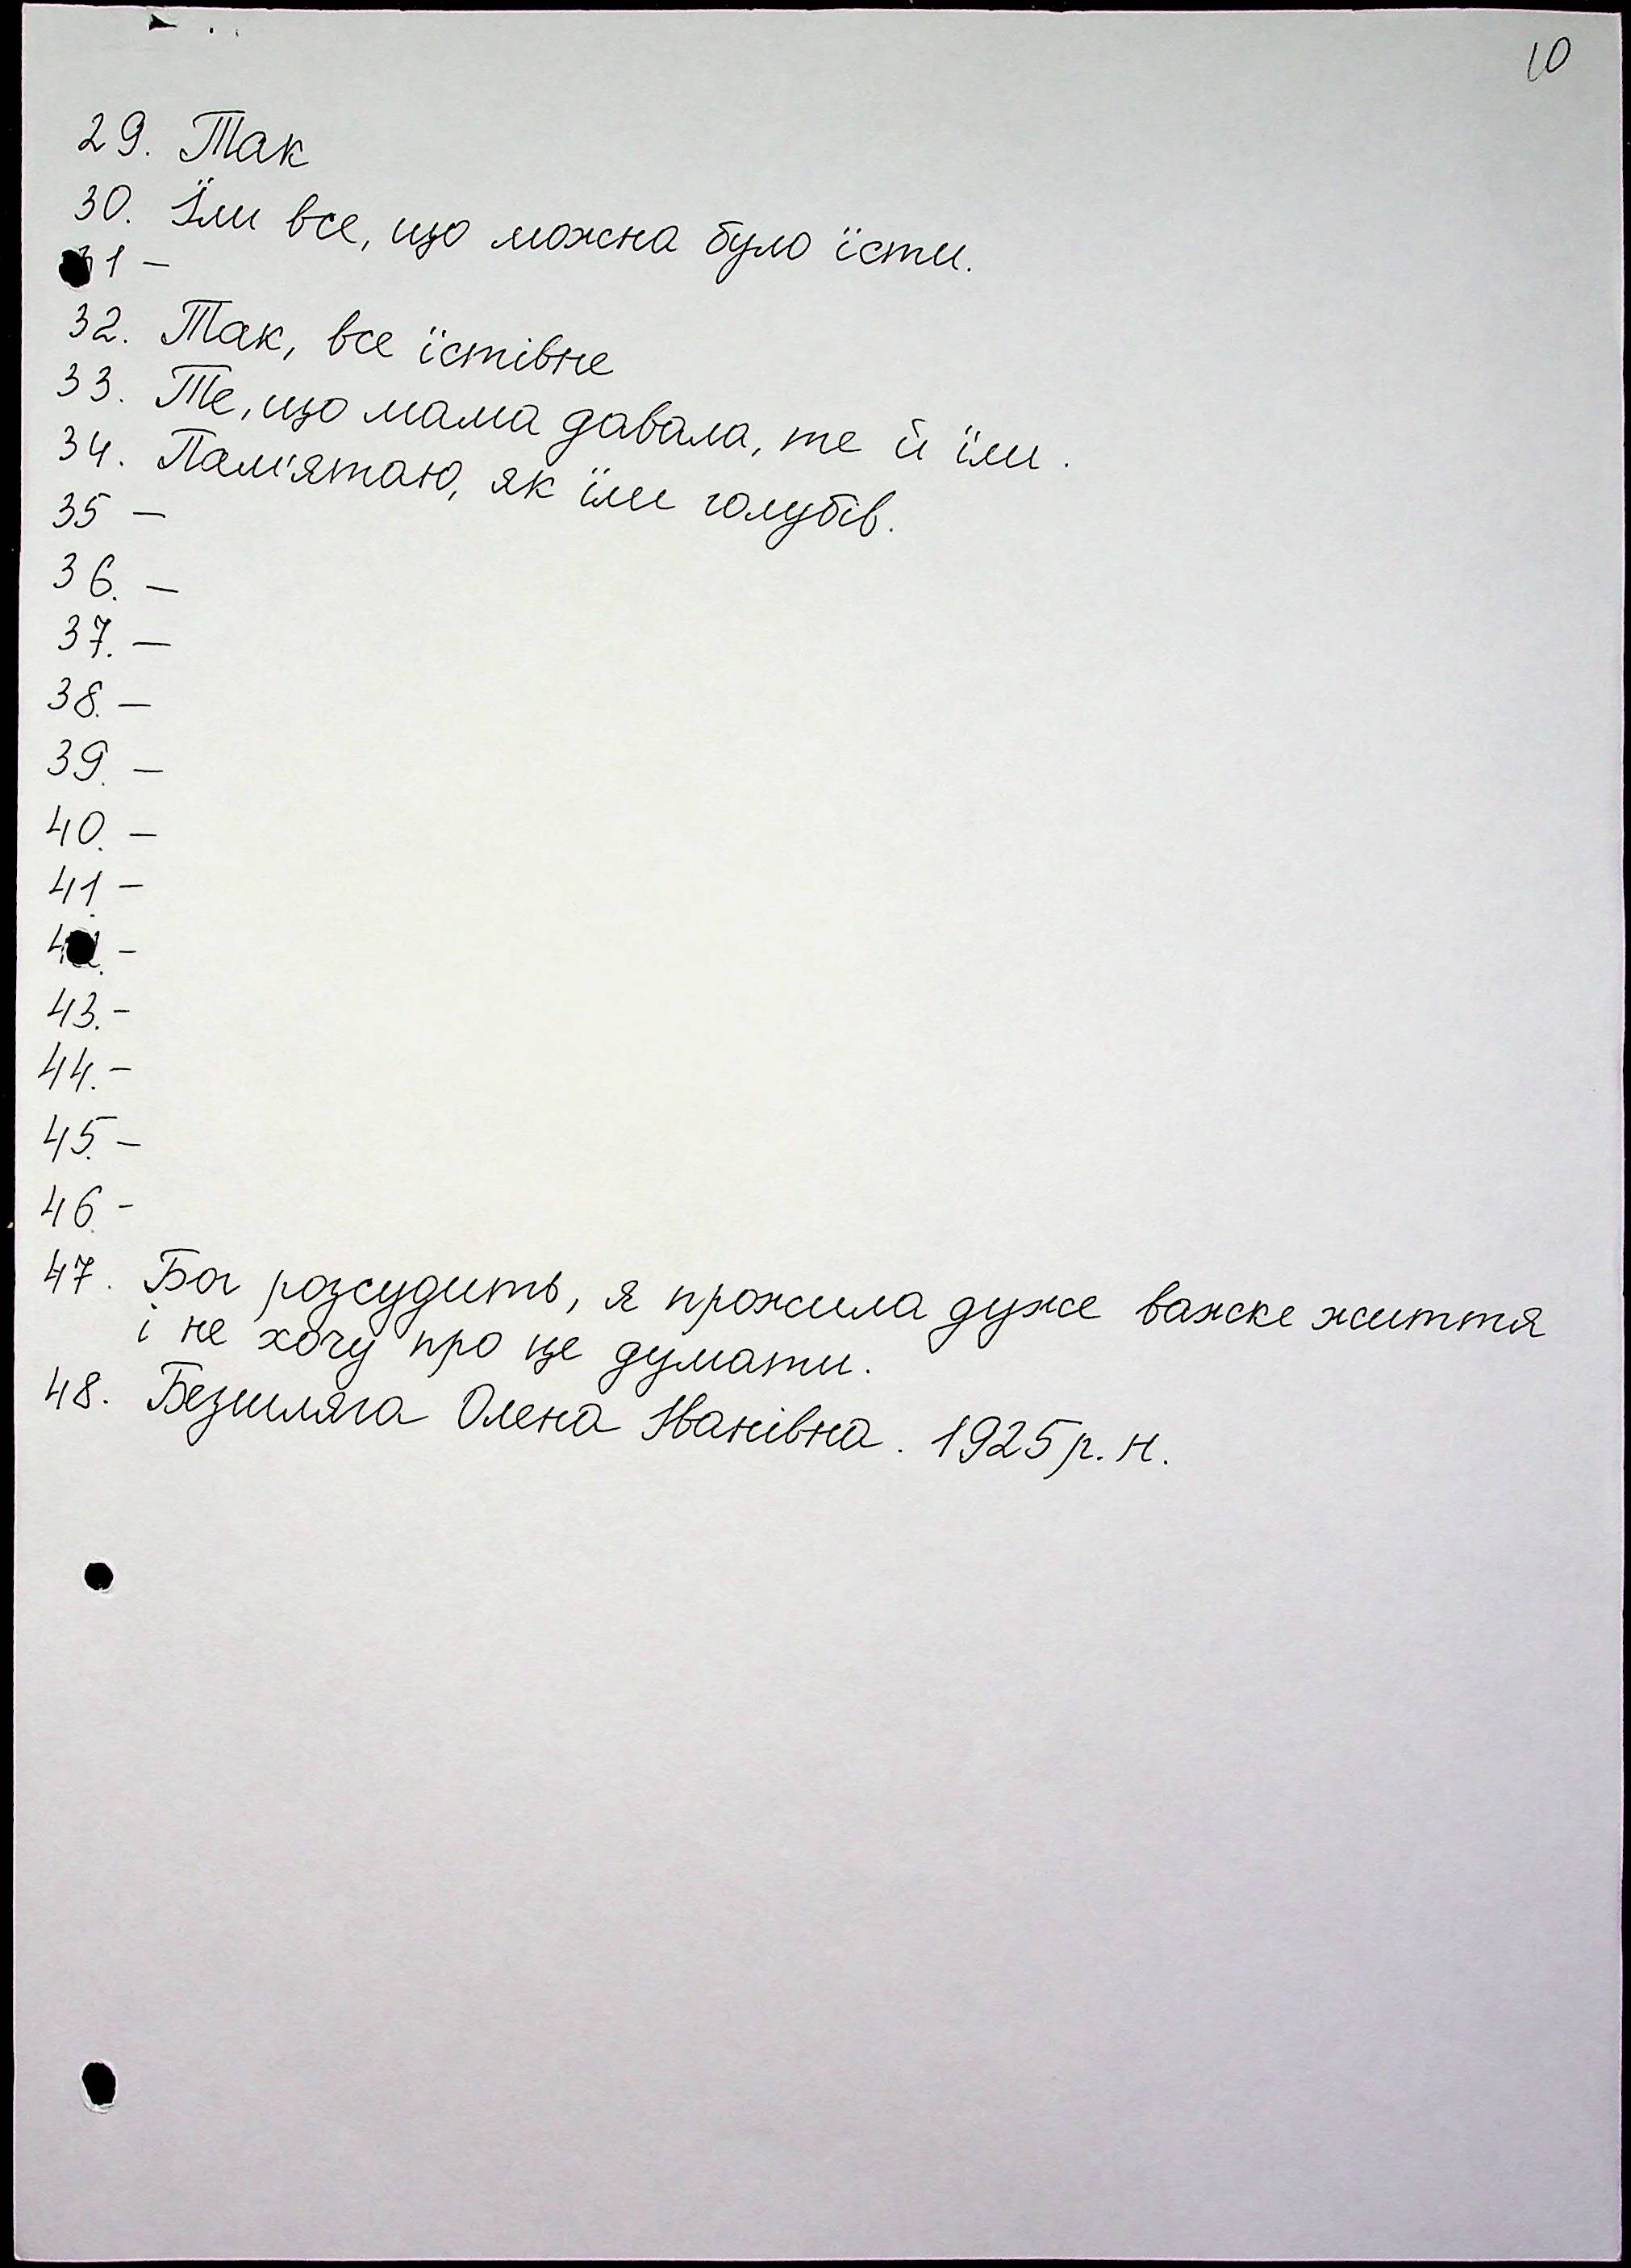 10
29. Так
30. Їли все, що можна було їсти.
31 –
32. Так, все їстівне
33. Те, що мама давала, те й їли.
34. Пам'ятаю, як їли голубів.
35 –
36. –
37. –
38. –
39. –
40. –
41 –
42. –
43. –
44. –
45. –
46. –
47. Бог розсудить, я прожила дуже важке життя
і не хочу про це думати.
48. Безшляга Олена Іванівна. 1925 р. н.